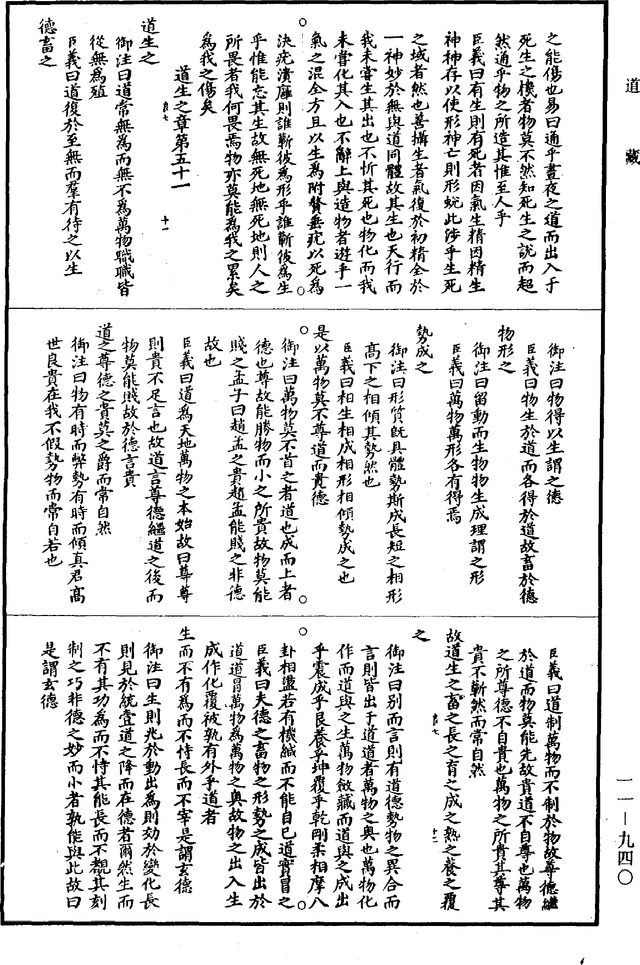 道藏
之能傷也易曰通乎晝夜之道而出入于
死生之機者物莫不然知死生之說而超
然通乎物之所造其惟至人乎
臣義曰有生則有死者因氣生精因精生
神神存以使形神亡則形蛻此涉乎生死
之域者然也善攝生者氣復於初精全於
一神妙於無與道同體故其生也天行而
我未嘗生其出也不忻其死也物化而我
未嘗化其入也不辭上與造物者遊乎一
氣之混全方且以生為附贅垂疣以死為
決疣潰癰則誰靳彼為形乎誰靳彼為生
乎惟能忘其生故無死地無死地則人之
所畏者我何畏焉物亦莫能為我之累矣
為我之傷矣
道生之章第五十一
道生之
御注曰道常無為而無不為萬物職職皆
從無為殖
臣義曰道復於至無而羣有待之以生
德畜之
御注曰物得以生謂之德
臣義曰物生於道而各得於道故畜於德
物形之
御注曰留動而生物物生成理謂之形
臣義曰萬物萬形各有得焉
勢成之
御注曰形質既具體勢斯成長短之相形
高下之相傾其勢然也
臣義曰相生相成相形相傾勢成之也
是以萬物莫不尊道而貴德
御注曰萬物莫不首之者道也成而上者
德也尊故能勝物而小之所貴故物莫能
賤之孟子曰趙孟之貴趙孟能賤之非德
故也
臣義曰道為天地萬物之本始故曰尊尊
則貴不足言也故道言尊德繼道之後而
物莫能賤故於德言貴
道之尊德之貴莫之爵而常自然
御注曰物有時而弊勢有時而傾真君高
世良貴在我不假勢物而常自若也
臣義曰道制萬物而不制於物故尊德繼
於道而物莫能先故貴道不自尊也萬物
之所尊德不自貴也萬物之所貴其尊其
貴不靳然而常自然
故道生之畜之長之育之成之熟之養之覆
之
御注曰別而言則有道德勢物之異合而
言則皆出于道道者萬物之奧也萬物化
作而道與之生萬物斂藏而道與之成出
乎震成乎艮養乎坤覆乎乾剛柔相摩八
卦相盪若有機緘而不能自已道實冒之
臣義曰夫德之畜物之形勢之成皆出於
道道冒萬物為萬物之奧故物之出入生
成作化覆被孰有外乎道者
生而不有為而不恃長而不宰是謂玄德
御注曰生則兆於動出為則効於變化長
則見於統壹道之降而在德者爾然生而
不有其功為而不恃其能長而不覩其刻
制之巧非德之妙而小者孰能與此故曰
是謂玄德
一一—九四〇